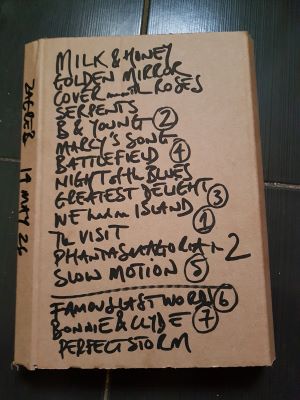 MILK & HONEY
GOLDEN MIRROR
COVER me with ROSES
SERPENTS
B & YOUNG ②
MARCY'S SONG
BATTLEFIELD ④
NIGHT of the BLUES
GREATEST DELIGHT ③
WE had an ISLAND ①
The VISIT
PHANTASMAGORIA in 2
SLOW MOTION ⑤
FAMOUS LAST WORDS ⑥
BONNIE & CLYDE ⑦
PERFECT STORM
ZAGREB 19 MAY 26